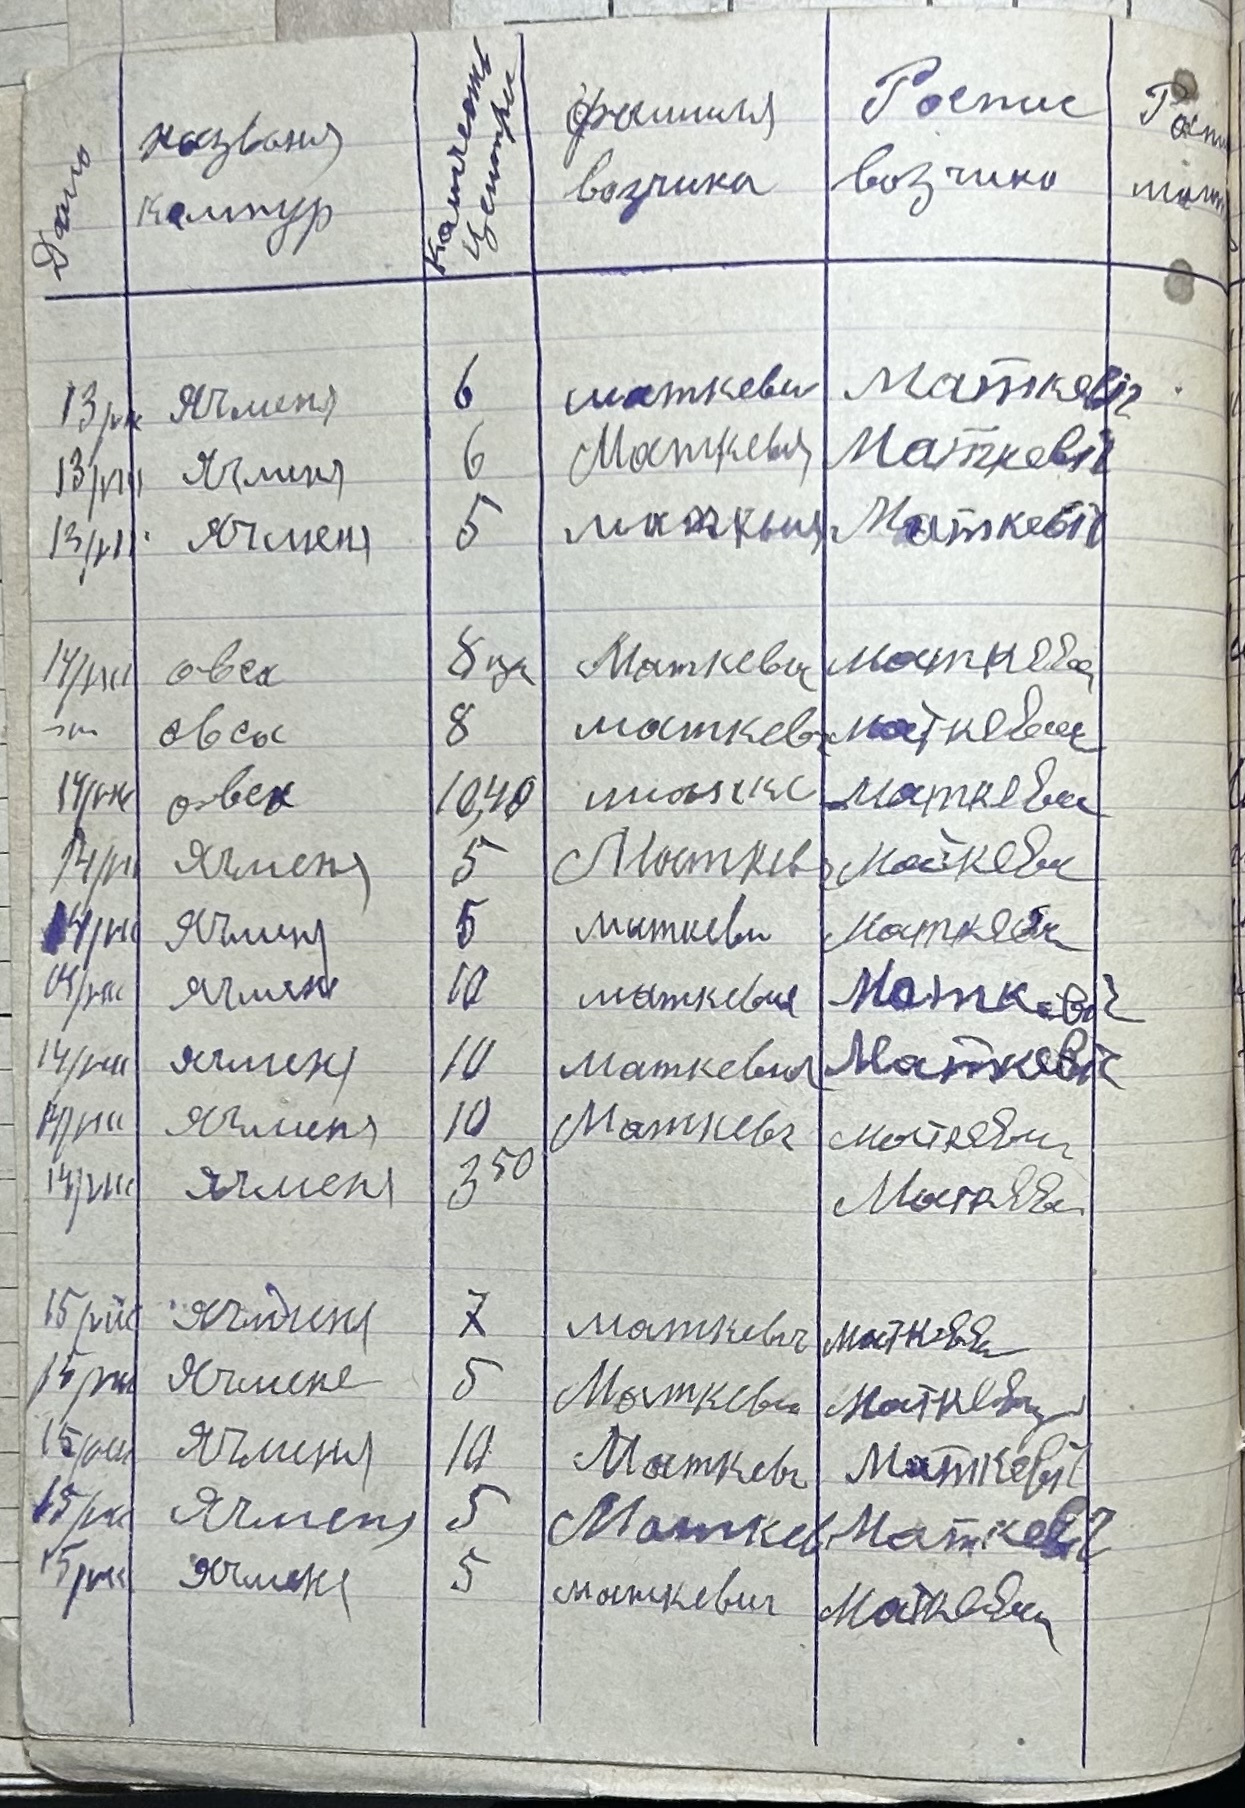 Дата названия культур Количеств Центнер фамилия возчика Роспис возчика
13/VIII Ячменя 6 маткевич Маткевіч
13/VIII Ячменя 6 Маткевич Маткевіч
13/VIII Ячменя 5 Маткевіч
14/VIII овса 8 ца Маткевич маткевич
овса 8 маткев маткевич
14/VIII овса 10,40 маткевич
14/VIII Ячменя 5 Маткев маткевич
14/VIII Ячменя 5 маткеви маткевич
14/VIII Ячменя 10 маткевич Маткевич
14/VIII Ячменя 10 маткевич Маткевіч
14/VIII Ячменя 10 Маткевич маткевич
14/VIII Ячменя 3 50 Маткевич
15/VIII Ячменя 7 маткевич маткевич
15/VIII Ячмене 5 Маткевич маткевич
15/VIII Ячменя 10 Маткевч Маткевіч
15/VIII Ячменя 5 Маткев Маткевіч
15/VIII Ячменя 5 маткевич Маткевич